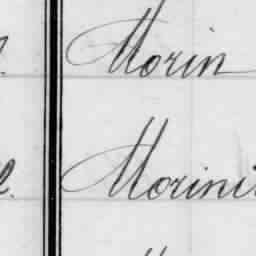 Morin
Morini